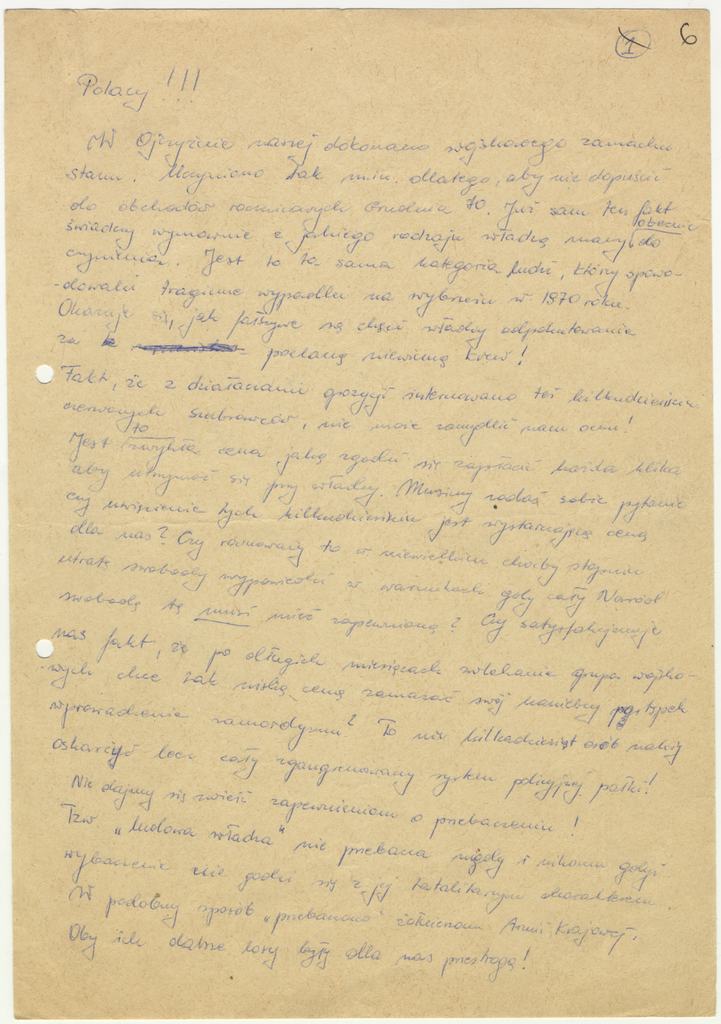 1 6
Polacy !!!
W Ojczyźnie naszej dokonano wojskowego zamachu
stanu. Uczyniono tak m.in. dlatego, aby nie dopuścić
do obchodów rocznicowych Grudnia 70. Już sam ten fakt
świadczy wymownie z jakiego rodzaju władzą mamy obecnie do
czynienia. Jest to ta sama kategoria ludzi, który spowo-
-dowali tragiczne wypadki na wybrzeżu w 1970 roku.
Okazuje się, jak fałszywe są chęci władzy odpokutowania
za przelaną niewinną krew!
Fakt, że z działaczami opozycji internowano też kilkudziesięciu
czerwonych, nie może zamydlić nam oczu!
Jest to zwykła cena jaką zgodzi się zapłacić każda klika
aby utrzymać się przy władzy. Musimy zadać sobie pytanie
czy uwięzienie tych kilkudziesięciu jest wystarczającą ceną
dla nas? Czy równoważy to w niewielkim choćby stopniu
utratę swobody wypowiedzi w warunkach gdy cały Naród
swobodę tę musi mieć zapewnioną? Czy satysfakcjonuje
nas fakt, że po długich miesiącach zwlekania grupa wojsko-
-wych chce tak niską ceną zamazać swój haniebny postępek
wprowadzenia zamordyzmu? To nie kilkadziesiąt osób należy
oskarżyć lecz cały zgangrenowany system policyjnej pałki!
Nie dajmy się zwieść zapewnieniom o przebaczeniu!
Tzw „ludowa władza" nie przebacza nigdy i nikomu gdyż
wybaczenie nie godzi się z jej totalitarnym charakterem.
W podobny sposób „przebaczono" żołnierzom Armii Krajowej.
Oby ich dalsze losy były dla nas przestrogą!